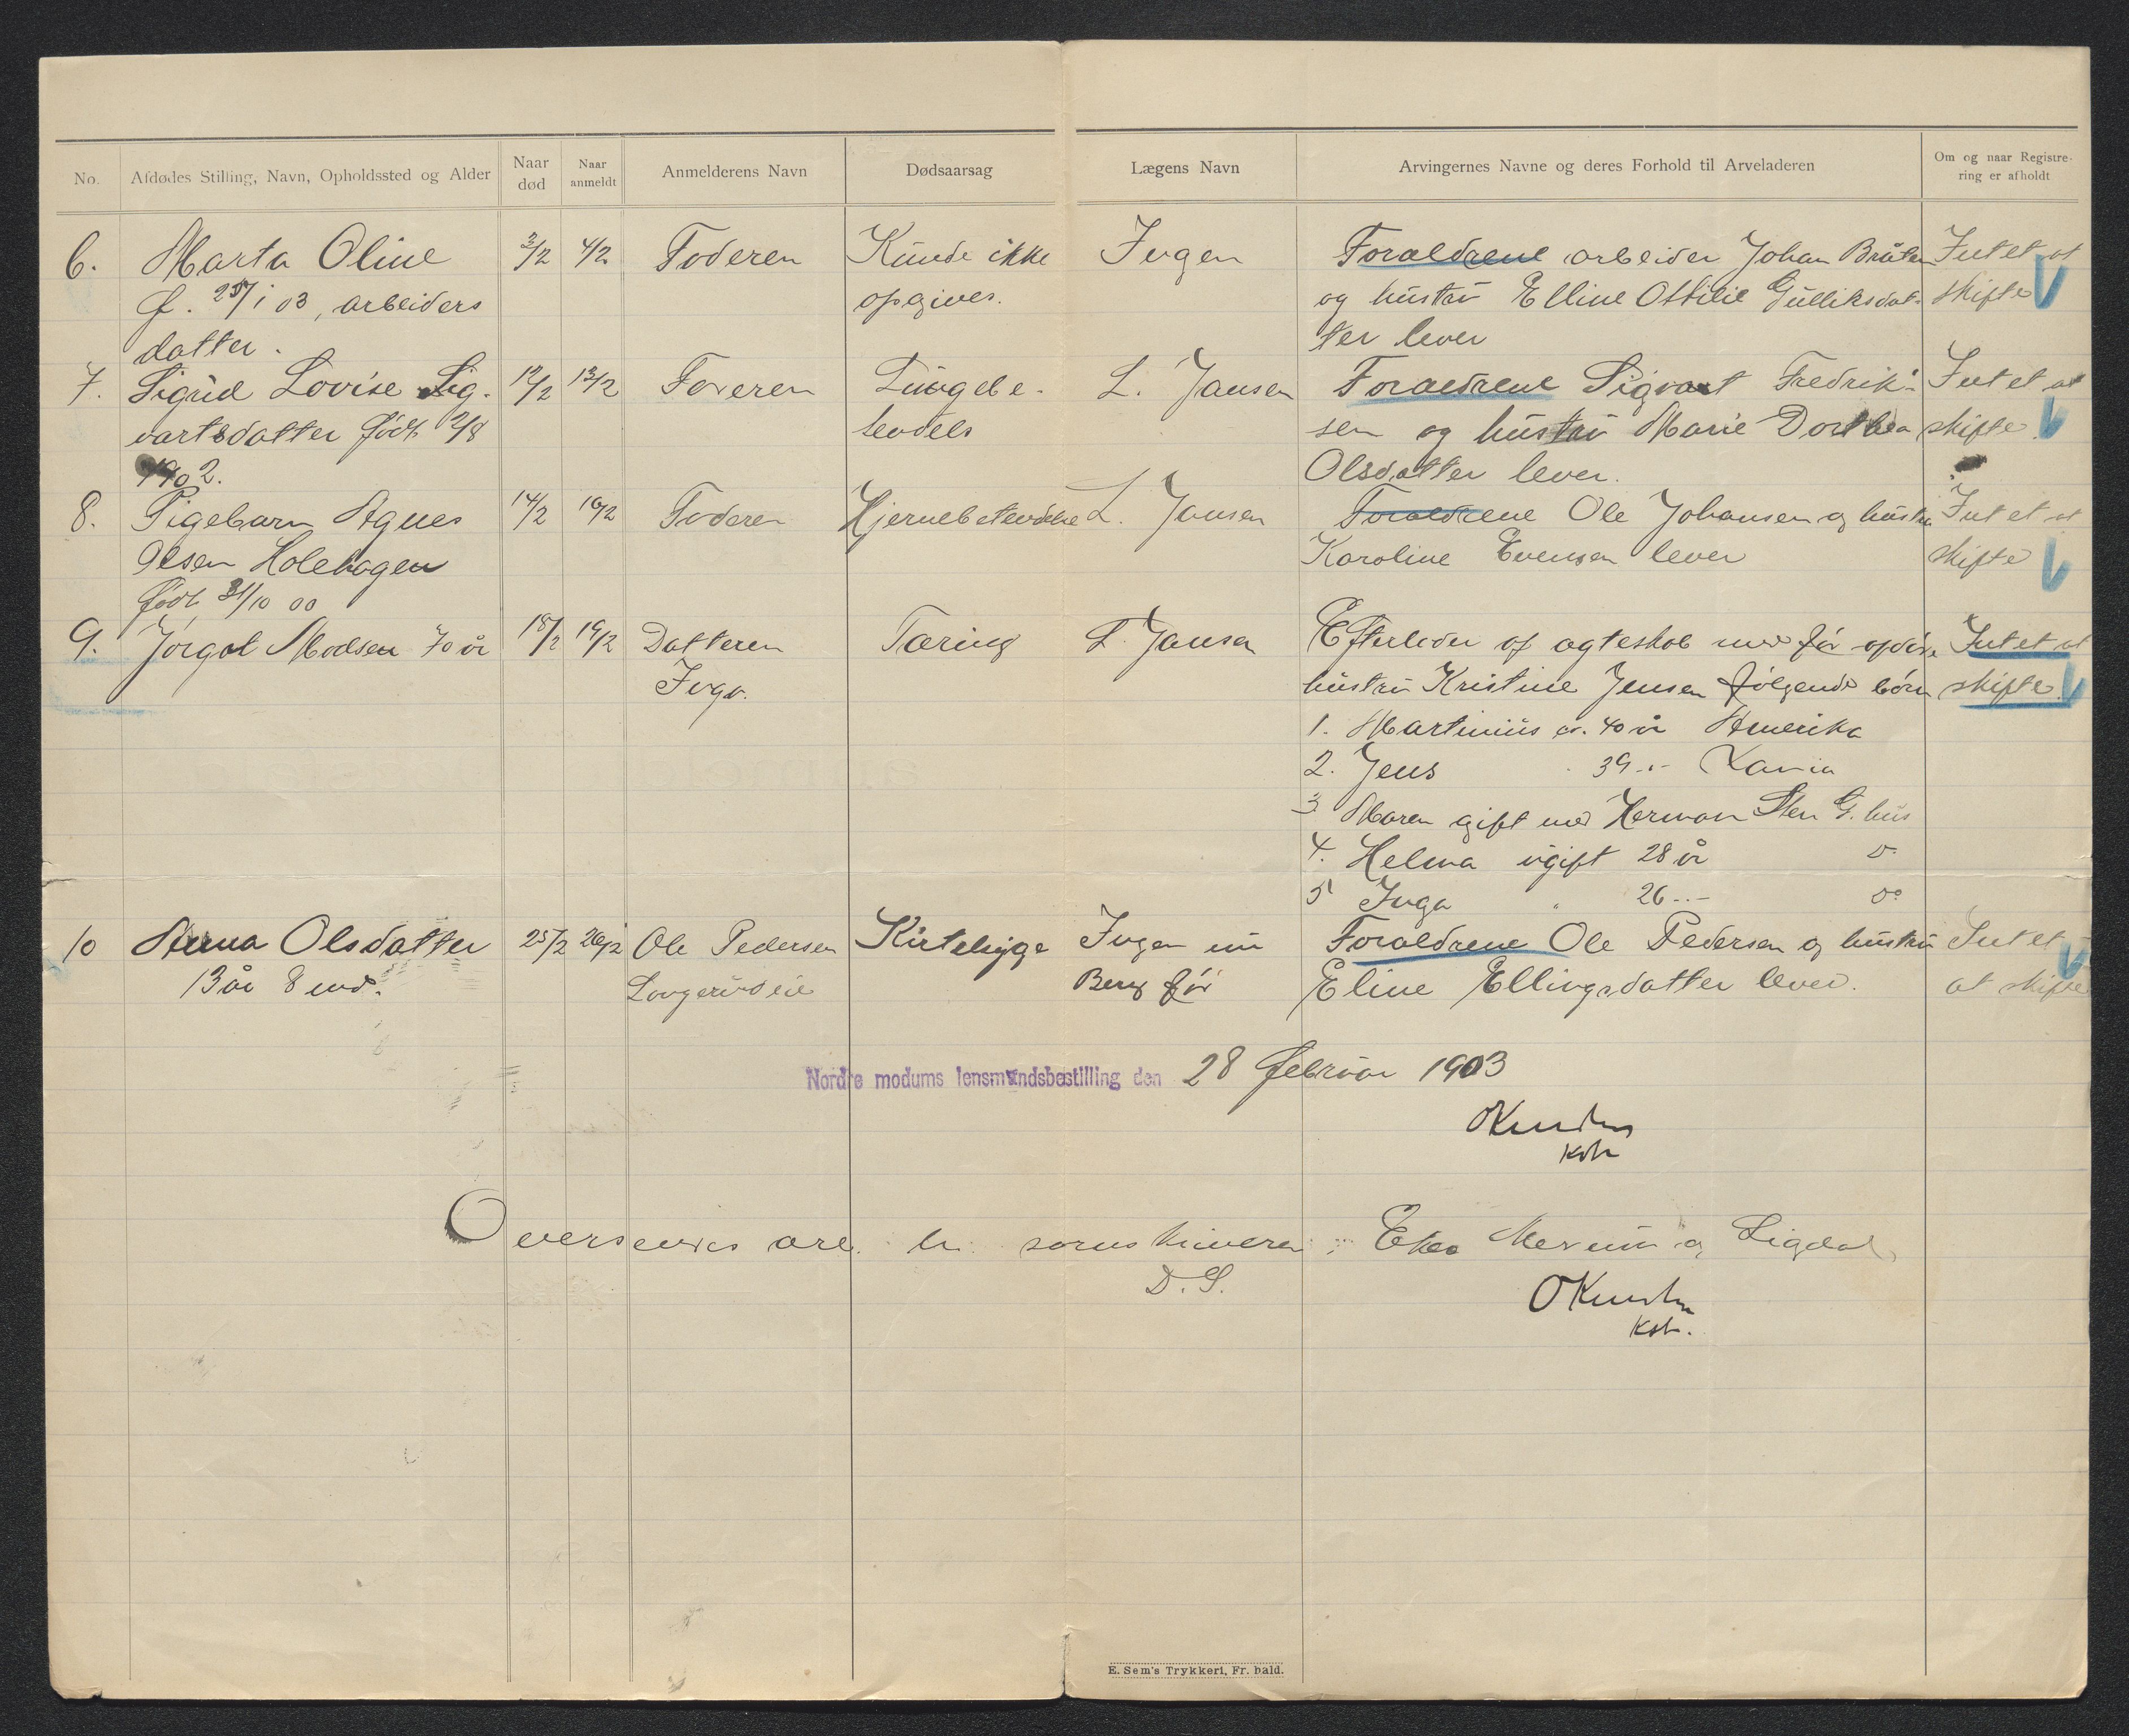 No. Afdødes Stilling, Navn, Opholdssted og Alder Naar død Naar anmeldt Anmelderens Navn Dødsaarsag Lægens Navn Arvingernes Navne og deres Forhold til Arveladeren Om og naar Registrering er afholdt
6. Marta Oline 3/2 4/2 Faderen Kunde ikke Ingen Forældrene arbeider Johan Bråten Intet at
f. 25/1 03, arbeiders opgives. og hustru Elline Ottilie Gulliksdat- skifte
datter. ter lever
7. Sigrid Lovise Sig- 12/2 13/2 Faderen Lungebe- L. Jansen Forældrene Sigvart Fredrik- Intet at
vartsdatter født 2/8 tendels sen og hustru Marie Dorthea skifte.
1902. Olsdatter lever.
8. Pigebarn Agnes 14/2 16/2 Faderen Hjernebetendelse L. Jansen Forældrene Ole Johansen og hustru Intet at
Olsen Holehagen Karoline Evensen lever skifte
født 31/10 00
9. Jørgol Madsen 70 år 18/2 19/2 Datteren Tæring L. Jansen Efterlader af ægteskab med før opdøde Intet at
Inga. hustru Kristine Jensen følgende børn skifte.
1. Martinius ca. 40 år Amerika
2. Jens 39 -"- Xania
3 Maren gift med Herman Sten G. hus
4. Helma ugift 28 år do
5 Inga " 26 -"- do
10 Anna Olsdatter 25/2 26/2 Ole Pedersen Kirtelsyge Ingen nu Forældrene Ole Pedersen og hustru Intet
13 år 8 md. Berg før Eline Ellingsdatter lever. at skifte
Nordre modums lensmandsbestilling den 28 februar 1903
OKnudsen
Kst.
Oversendes ærb. hr. sorenskriveren i Eker Modum og Sigdal
D. S.
OKnudsen
Kst.
E. Sem's Trykkeri, Fr. hald.